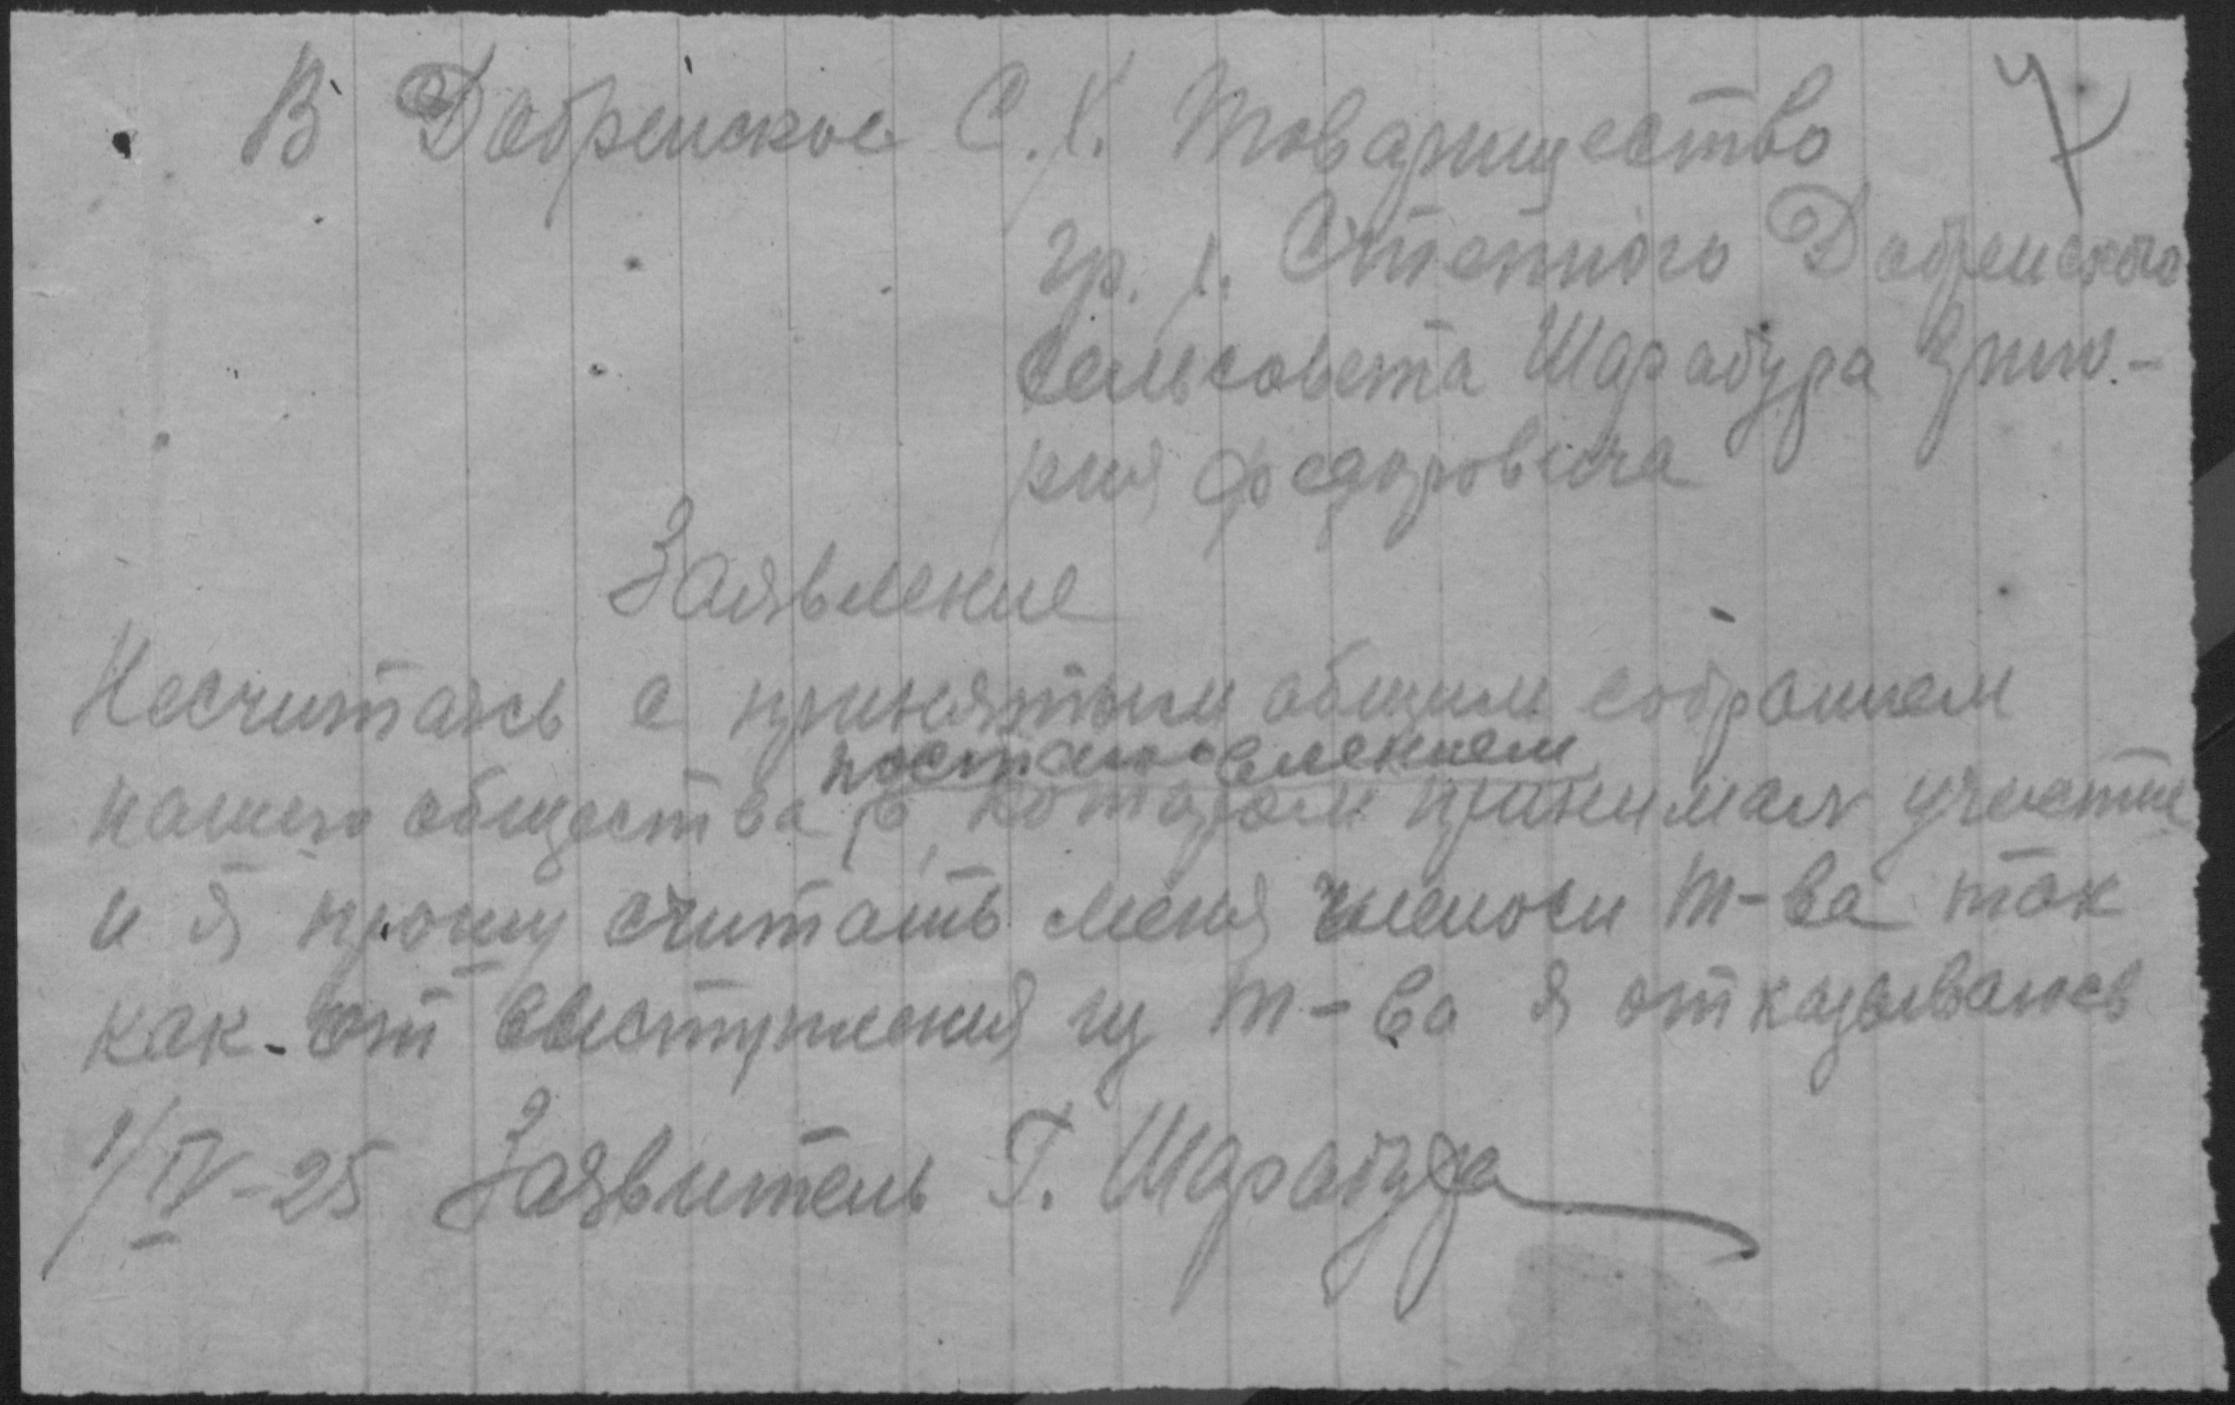 7
В Добренское С.Х. Товарищество
гр. х. Степного Добренского
сельсовета Шарабура Григо-
рия Федоровича
Заявление
Несчитаясь с принятым общим собранием
постановлением
нашего общества в котором принимал участие
и я прошу считать меня членом т-ва так
как от выступления из т-ва я отказываюсь
1/IV-25 Заявитель Г. Шарабура